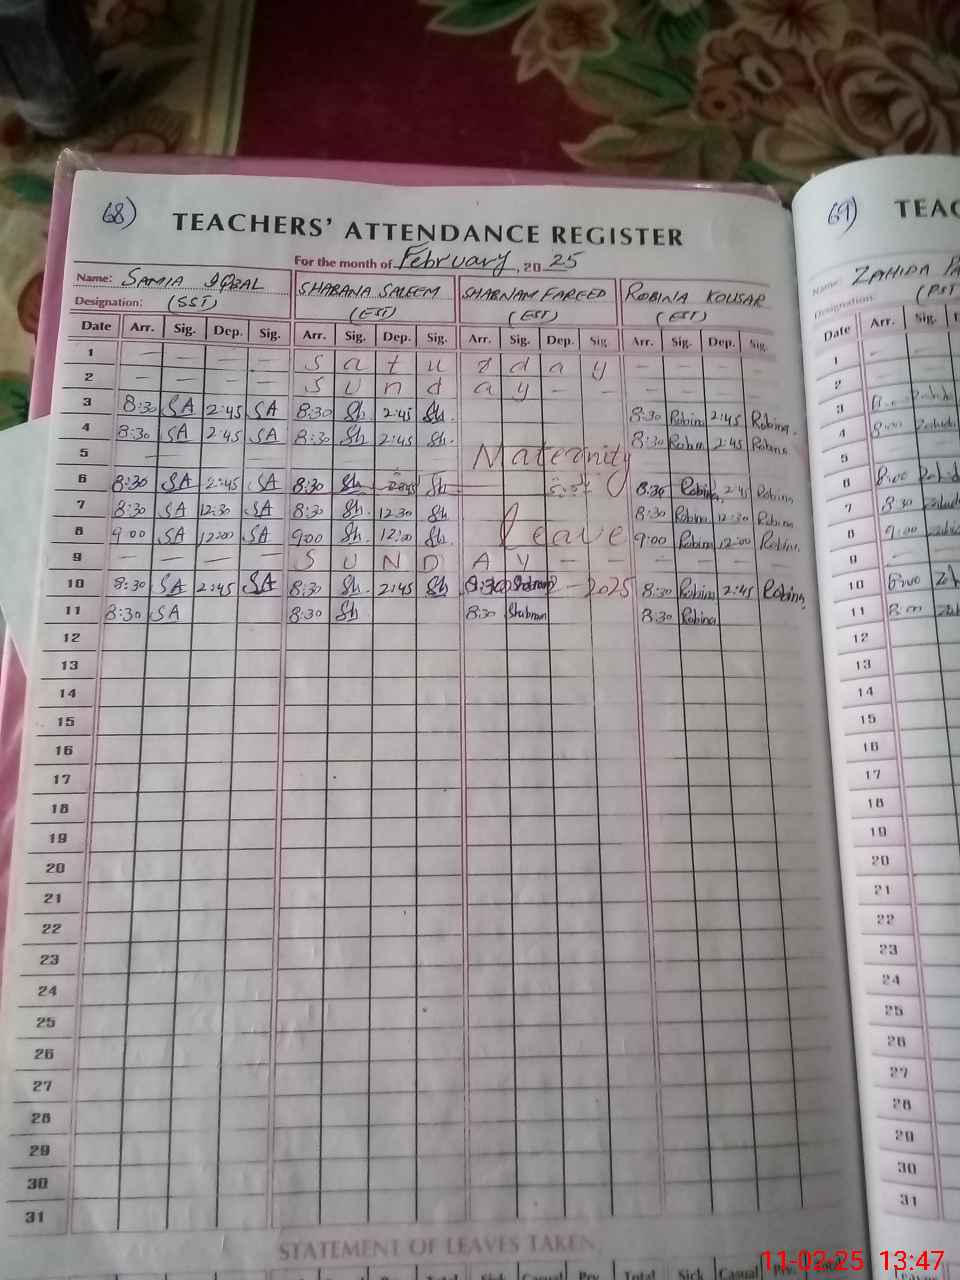 68)
TEACHERS' ATTENDANCE REGISTER
For the month of February, 2025
Name: SAMIA IQBAL SHABANA SALEEM SHABNAM FAREED ROBINA KOUSAR
Designation: (SST) (EST) (EST) (EST)
Date Arr. Sig. Dep. Sig. Arr. Sig. Dep. Sig. Arr. Sig. Dep. Sig Arr. Sig. Dep. Sig.
1 — — — — S a t u r d a y — — — —
2 — — — — S u n d a y — — — — — —
3 8:30 SA 2:45 SA 8:30 Sh 2:45 Sh. 8:30 Robina 2:45 Robina.
4 8:30 SA 2:45 SA 8:30 Sh 2:45 Sh. 8:30 Robina 2:45 Robina
5 — Maternity
6 8:30 SA 2:45 SA 8:30 Sh 2:45 Sh 8:30 Robina, 2:45 Robina
7 8:30 SA 12:30 SA 8:30 Sh. 12:30 Sh 8:30 Robina 12:30 Robina
8 9:00 SA 12:00 SA 9:00 Sh. 12:00 Sh. leave 9:00 Robina, 12:00 Robina.
9 — — — — S U N D A Y — — — — — —
10 8:30 SA 2:45 SA 8:30 Sh. 2:45 Sh 8:30 Shabnam 2-2025 8:30 Robina 2:45 Robina,
11 8:30 SA 8:30 Sh 8:30 Shabnam 8:30 Robina
12
13
14
15
16
17
18
19
20
21
22
23
24
25
26
27
28
29
30
31
STATEMENT OF LEAVES TAKEN
Total Sick Casual Prv. Total Sick Casual Prv. Total
69)
TEAC
Name: ZAHIDA
Designation: (PST)
Date Arr. Sig.
1 -
2
3
4 8:00 Zahida
5
6 8:00 Zahid
7 8:30 Zahida
8 9:00 Zahida
9 — —
10 8:00 Zah
11 8:00
12
13
14
15
16
17
18
19
20
21
22
23
24
25
26
27
28
29
30
31
11-02-25 13:47